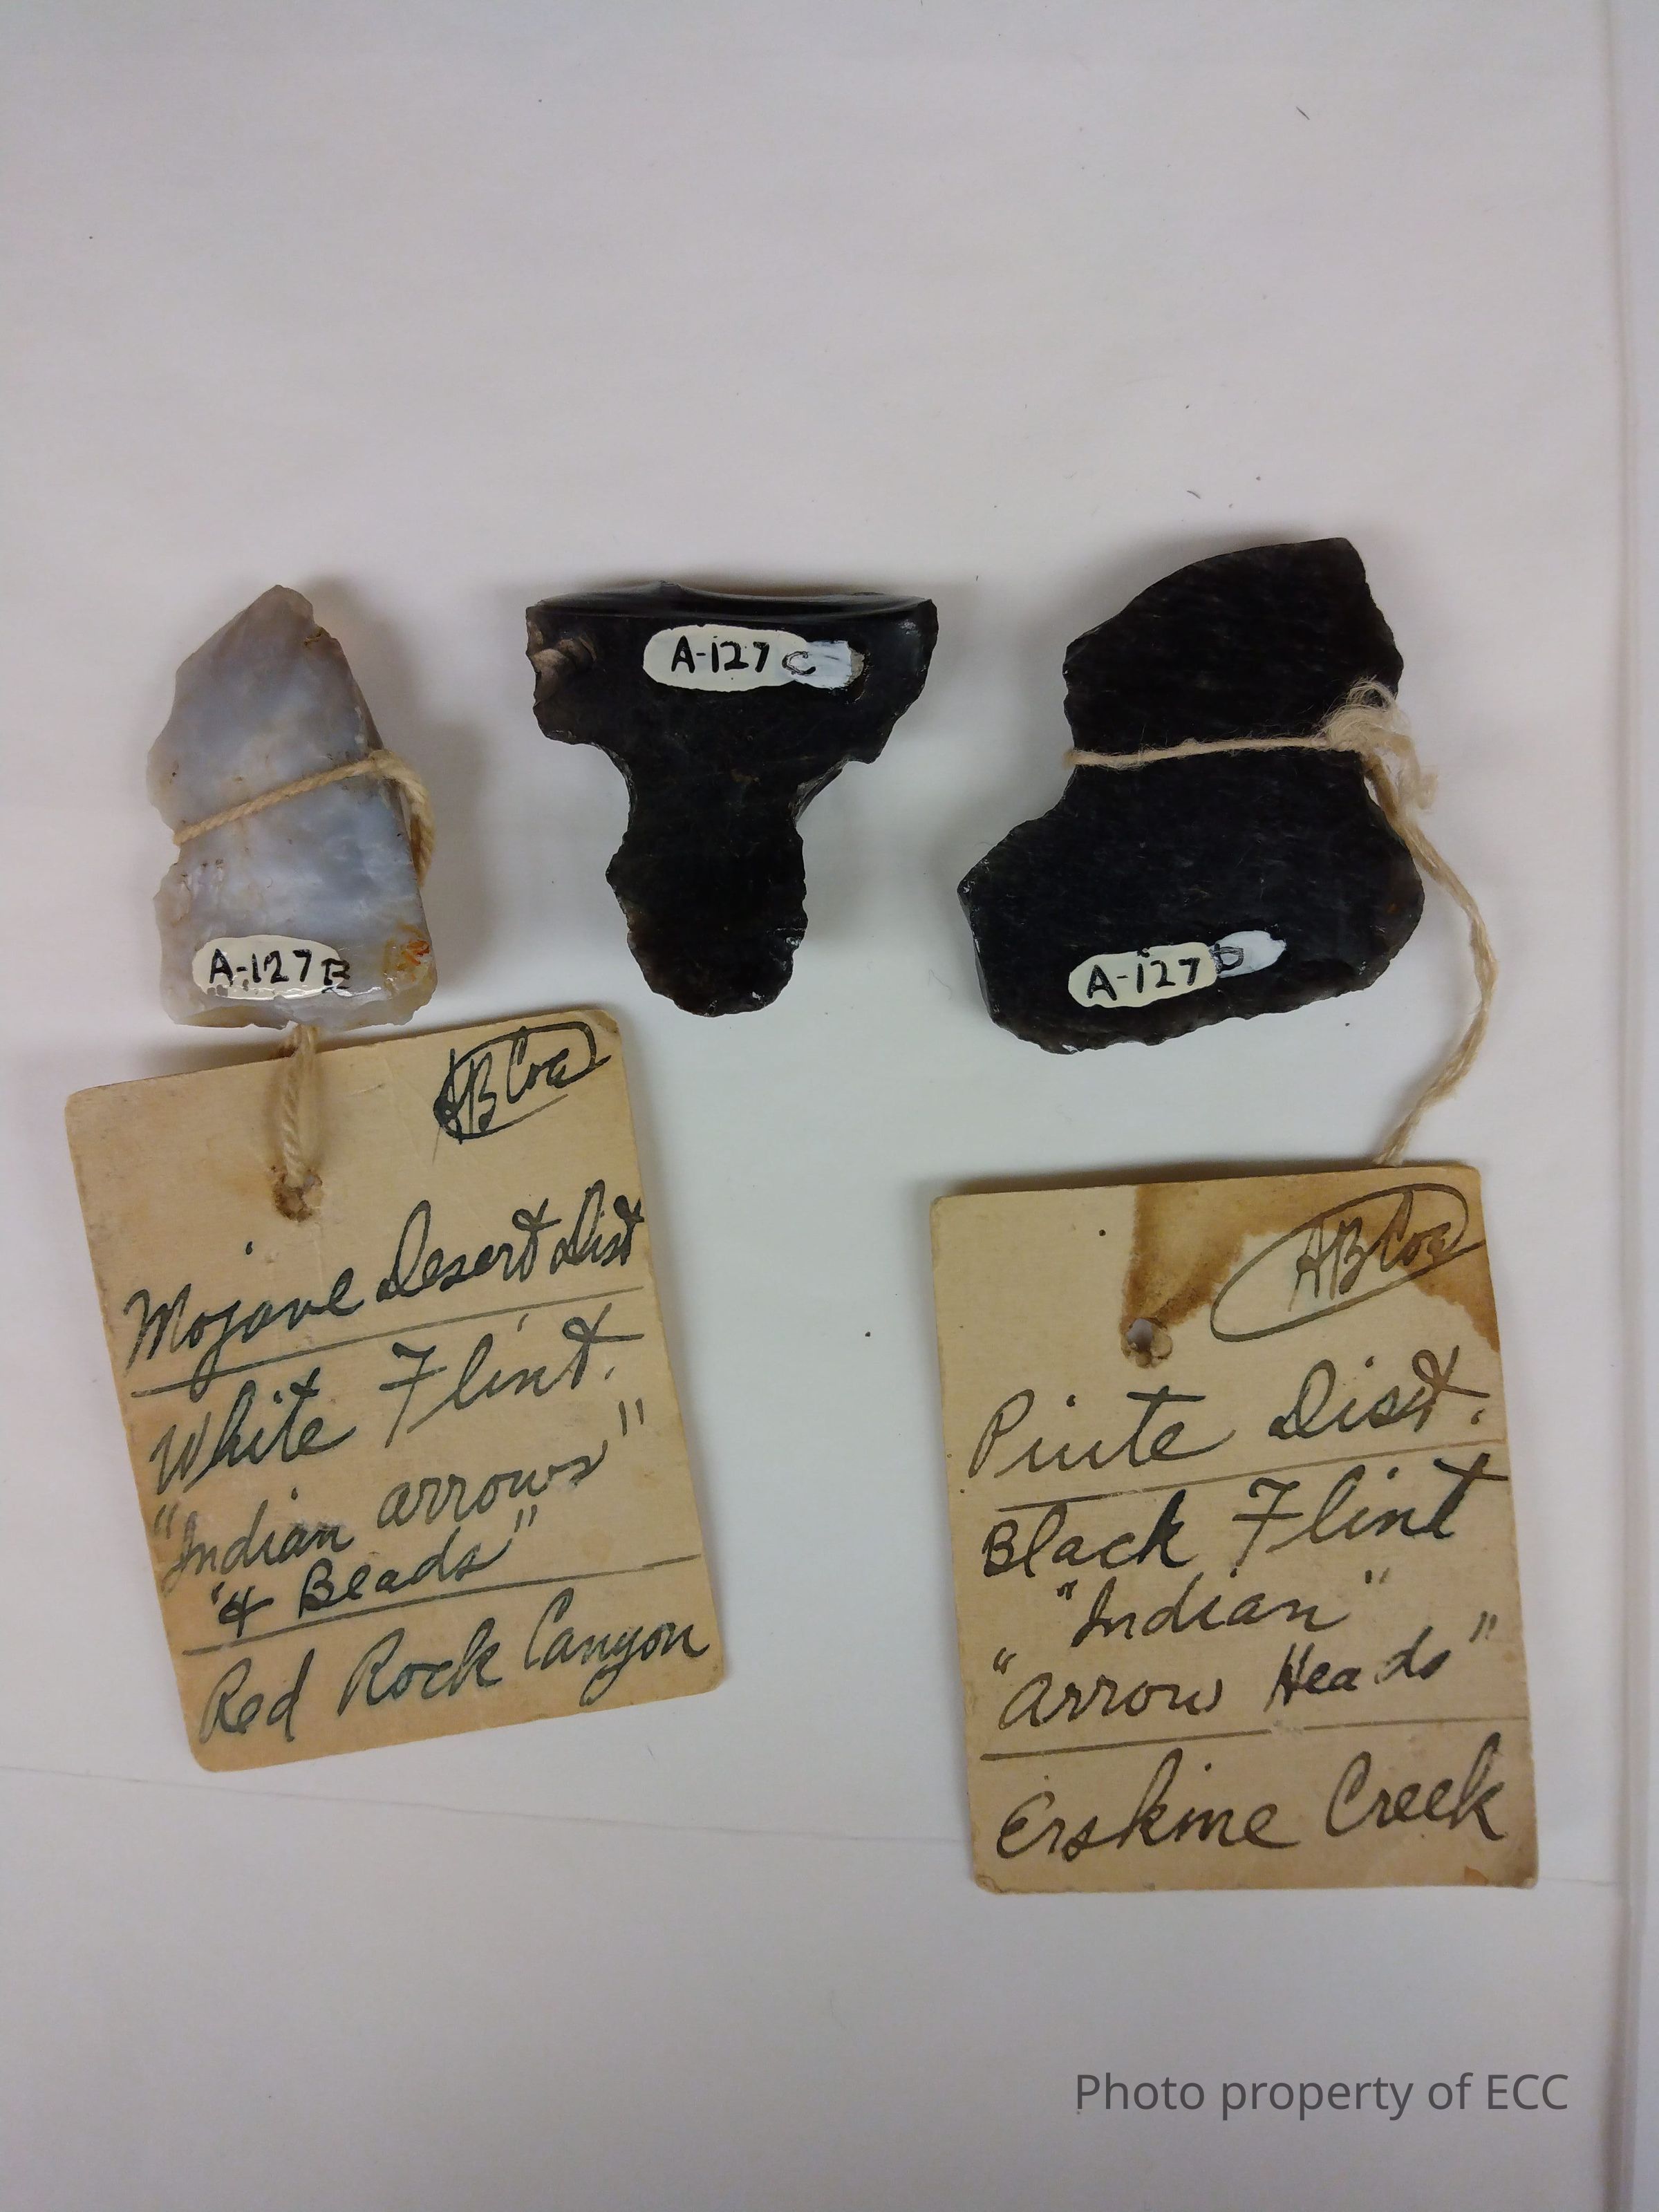 A-127 B
A-127 C
A-127 D
AB Coe
Mojave Desert Dist
White Flint.
"Indian arrows"
"& Beads"
Red Rock Canyon
AB Coe
Piute Dist.
Black Flint
"Indian"
"Arrow Heads"
Erskine Creek
Photo property of ECC